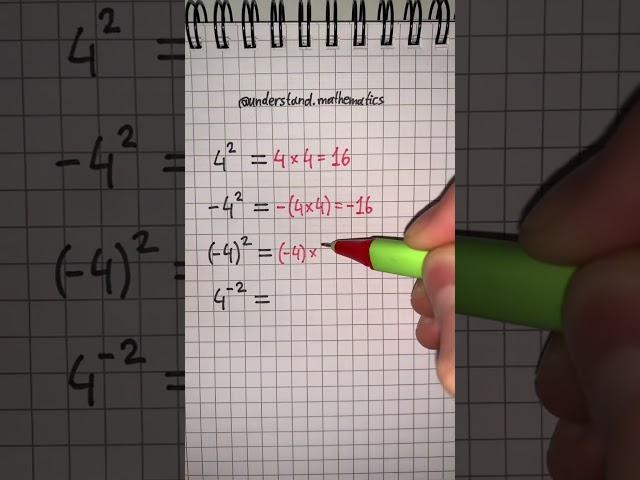 @understand.mathematics
4² = 4 × 4 = 16
-4² = -(4×4) = -16
(-4)² = (-4) ×
4⁻² =
4² =
-4² =
(-4)² =
4⁻² =